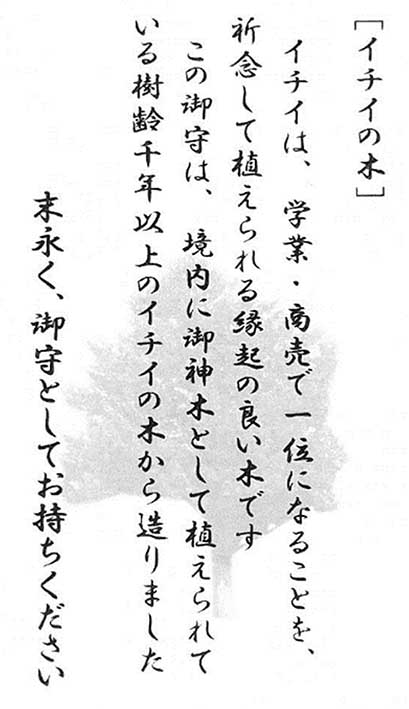 ［イチイの木］
イチイは、学業・商売で一位になることを、
祈念して植えられる縁起の良い木です
この御守は、境内に御神木として植えられて
いる樹齢千年以上のイチイの木から造りました
末永く、御守としてお持ちください